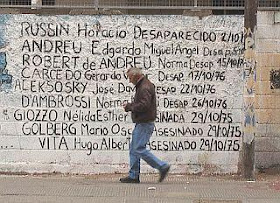 RUSSIN Horacio DESAPARECIDO 2/10/
ANDREU Edgardo Miguel Angel Desap
ROBERT de ANDREU Norma Desap 15/10/
CARCEDO Gerardo DESAP. 17/10/76
ALEKSOSKY José DESAP 22/10/76
D'AMBROSSI Norma DESAP 26/10/76
GIOZZO Nélida Esther ASESINADA 29/10/75
GOLBERG Mario Osc ASESINADO 29/10/75
VITA Hugo Albert ASESINADO 29/10/75